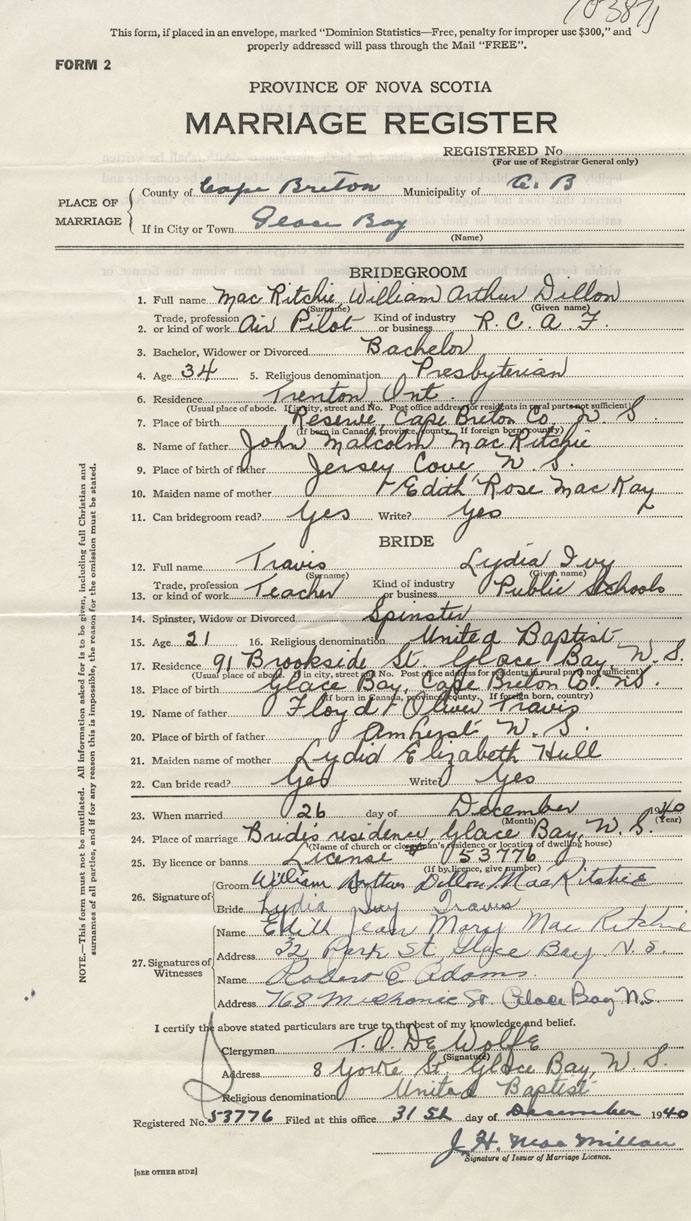 This form, if placed in an envelope, marked "Dominion Statistics—Free, penalty for improper use $300," and
properly addressed will pass through the Mail "FREE".
FORM 2
PROVINCE OF NOVA SCOTIA
MARRIAGE REGISTER
REGISTERED No.
(For use of Registrar General only)
PLACE OF MARRIAGE
County of Cape Breton Municipality of C. B
If in City or Town Glace Bay
(Name)
BRIDEGROOM
1. Full name MacRitchie William Arthur Dillon
(Surname) (Given name)
2. Trade, profession or kind of work Air Pilot Kind of industry or business R. C. A. F.
3. Bachelor, Widower or Divorced Bachelor
4. Age 34 5. Religious denomination Presbyterian
6. Residence Trenton Ont.
(Usual place of abode. If in city, street and No. Post office address for residents in rural parts not sufficient)
7. Place of birth Reserve, Cape Breton Co, N. S.
(If born in Canada, province, county. If foreign born, country)
8. Name of father John Malcolm MacRitchie
9. Place of birth of father Jersey Cove, N. S.
10. Maiden name of mother Edith Rose MacKay
11. Can bridegroom read? Yes Write? Yes
BRIDE
12. Full name Travis Lydia Ivy
(Surname) (Given name)
13. Trade, profession or kind of work Teacher Kind of industry or business Public Schools
14. Spinster, Widow or Divorced Spinster
15. Age 21 16. Religious denomination United Baptist
17. Residence 91 Brookside St. Glace Bay, N. S.
(Usual place of abode. If in city, street and No. Post office address for residents in rural parts not sufficient)
18. Place of birth Glace Bay, Cape Breton Co. N.S.
(If born in Canada, province, county. If foreign born, country)
19. Name of father Floyd Oliver Travis
20. Place of birth of father Amherst N. S.
21. Maiden name of mother Lydia Elizabeth Hull
22. Can bride read? Yes Write? Yes
23. When married 26 day of December 1940
(Month) (Year)
24. Place of marriage Bride's residence, Glace Bay, N. S.
(Name of church or clergyman's residence or location of dwelling house)
25. By licence or banns License 53776
(If by licence, give number)
26. Signature of
Groom William Arthur Dillon MacRitchie
Bride Lydia Ivy Travis
27. Signatures of Witnesses
Name Edith Jean Mary MacRitchie
Address 32 Park St. Glace Bay. N. S.
Name Robert E. Adams.
Address 768 Mechanic St. Glace Bay N.S.
I certify the above stated particulars are true to the best of my knowledge and belief.
Clergyman T. O. DeWolfe
(Signature)
Address 8 Yorke St. Glace Bay, N. S.
Religious denomination United Baptist
Registered No. 53776 Filed at this office 31st day of December 1940
J. H. MacMillan
Signature of Issuer of Marriage Licence.
[SEE OTHER SIDE]
NOTE.—This form must not be mutilated. All information asked for is to be given, including full Christian and
surnames of all parties, and if for any reason this is impossible, the reason for the omission must be stated.